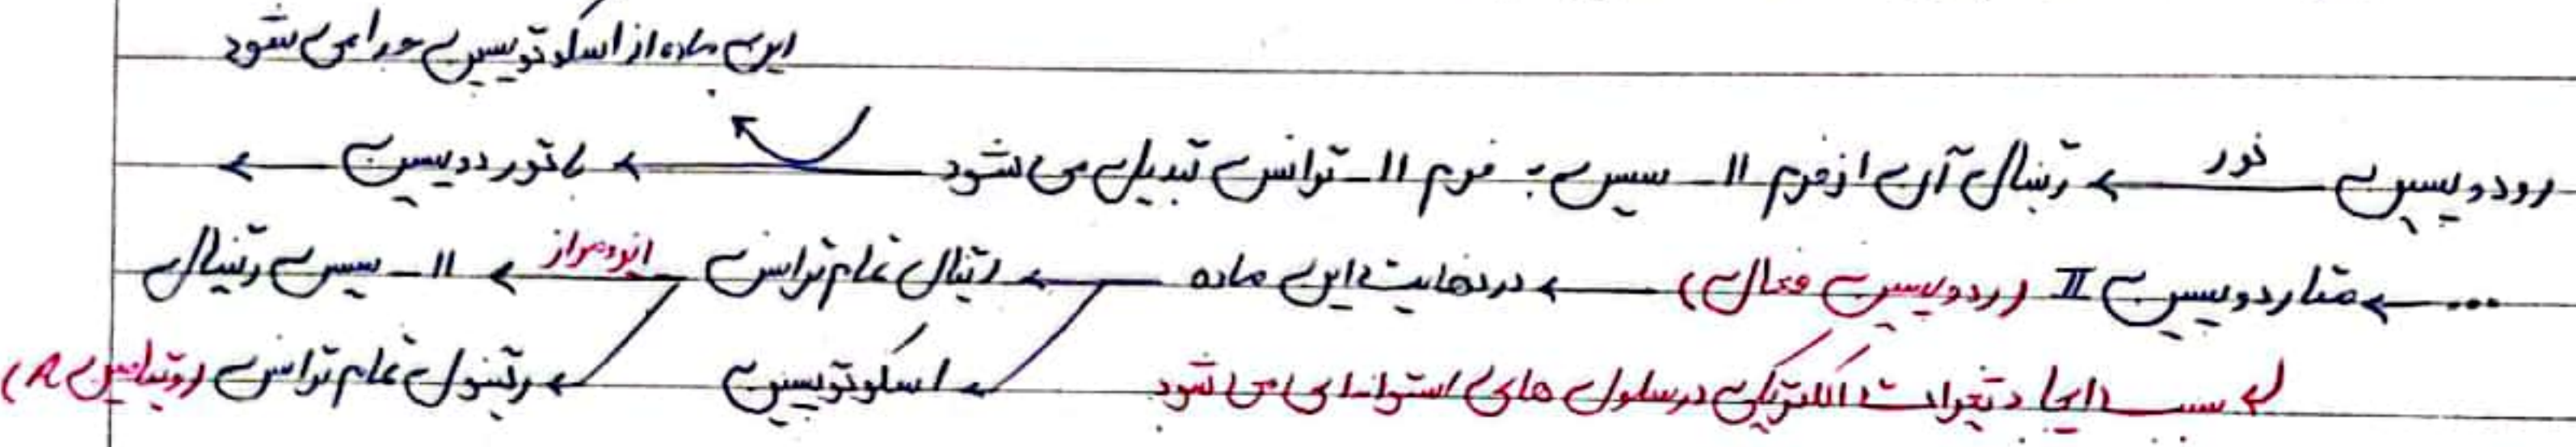 این ماده از اسکوتوپسین جدا می شود
رودوپسین ← نور رتینال آن از فرم 11- سیس به فرم 11- ترانس تبدیل می شود ← باتورودپسین ←
... ← متارودوپسین II (رودوپسین فعال) ← در نهایت این ماده ← رتینال تمام ترانس ← ایزومراز 11- سیس رتینال
↳ سبب ایجاد تغیرات الکتریکی در سلول های استوانه ای می شود ← اسکوتوپسین ← رتینول تمام ترانس (ویتامین A)